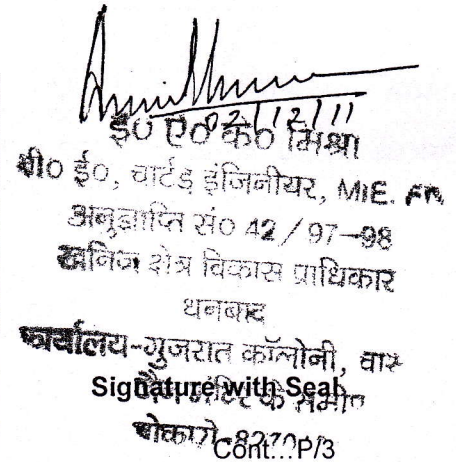 02/12/11
ई० ए० के० मिश्रा
बी० ई०, चार्टड इंजिनीयर, MIE.
अनुज्ञाप्ति सं० 42 / 97-98
खनिज क्षेत्र विकास प्राधिकार
धनबाद
कार्यालय-गुजरात कॉलोनी, चास
Signature with Seal
के समीप
बोकारो
Cont...P/3